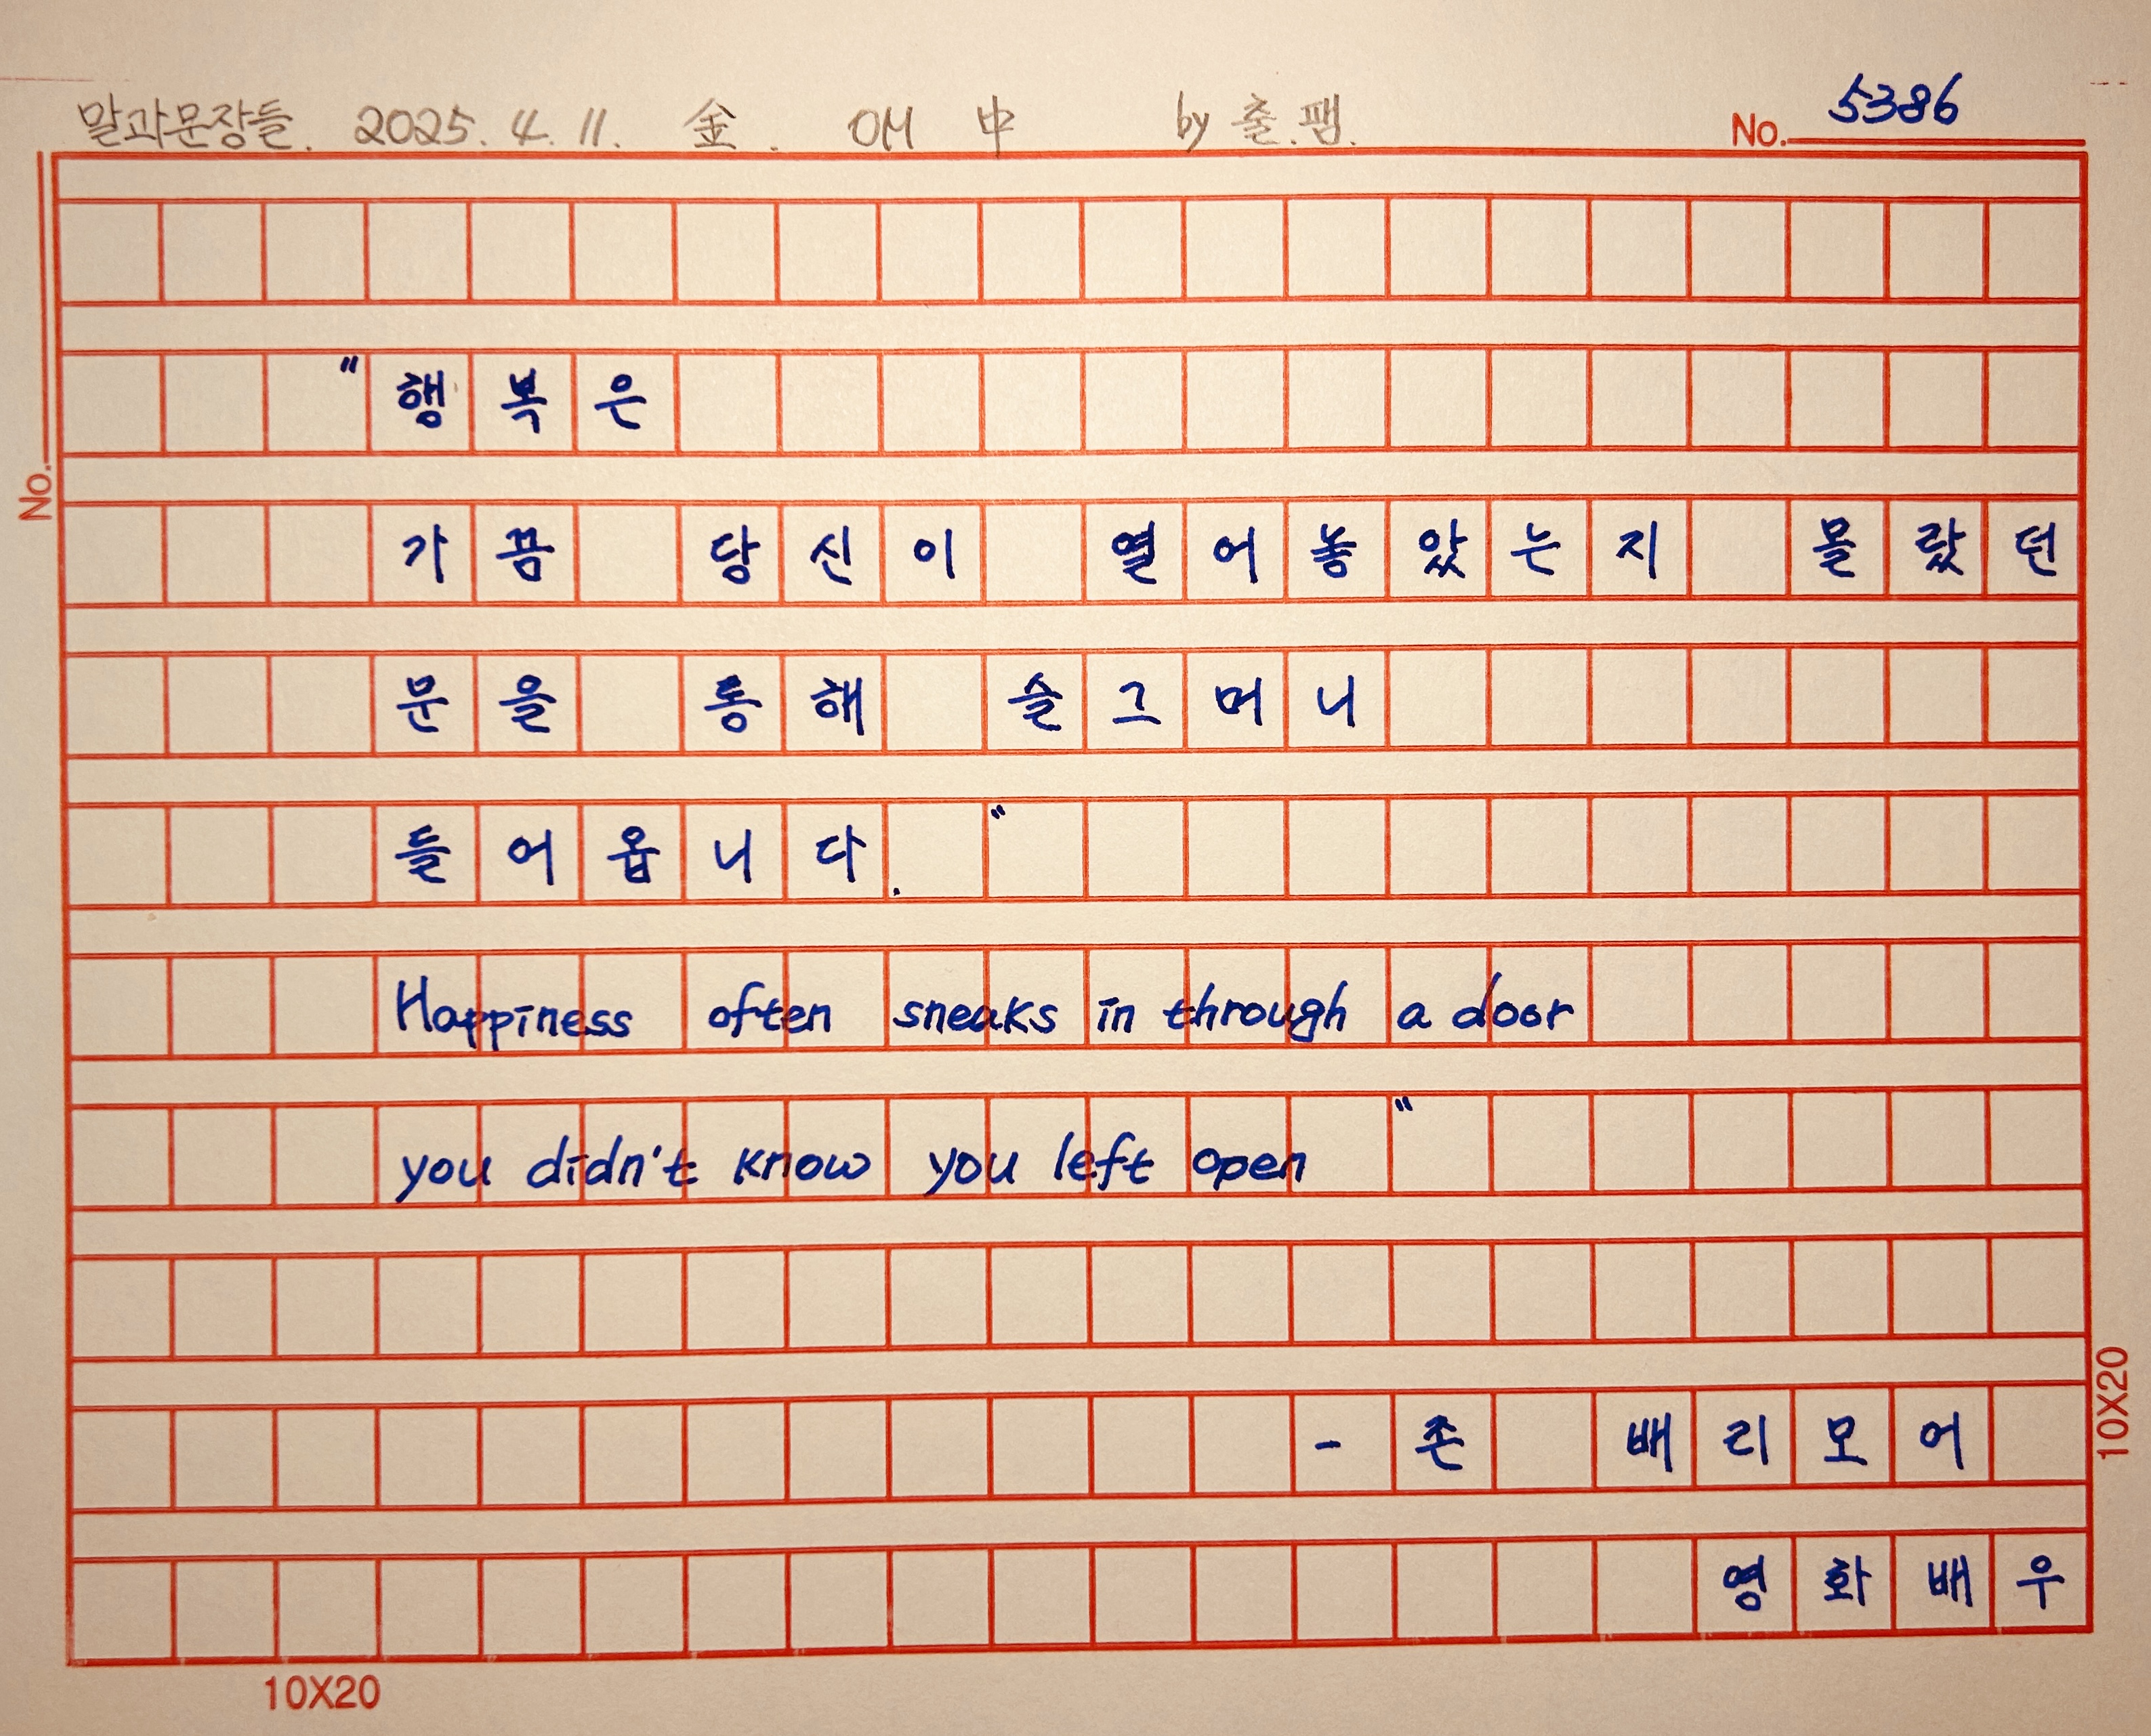 말과문장들. 2025. 4. 11. 金. OM 中 by 출.팸.
No. 5386
"행복은
가끔 당신이 열어놓았는지 몰랐던
No.
문을 통해 슬그머니
들어옵니다."
Happiness often sneaks in through a door
you didn't know you left open"
- 존 배리모어
10X20
영화배우
10X20